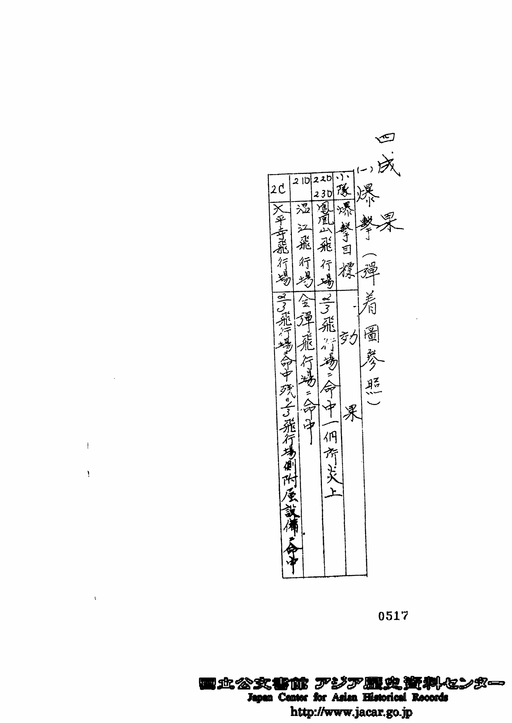 四、成果
(一)爆撃(弾着圖参照)
小隊 爆撃目標 効果
22D 23D 鳳凰山飛行場 2/3飛行場ニ命中一個所炎上
21D 温江飛行場 全弾飛行場ニ命中
2C 太平寺飛行場 2/3飛行場ニ命中残1/3飛行場側附属設備ニ命中
0517
国立公文書館 アジア歴史資料センター
Japan Center for Asian Historical Records
http://www.jacar.go.jp